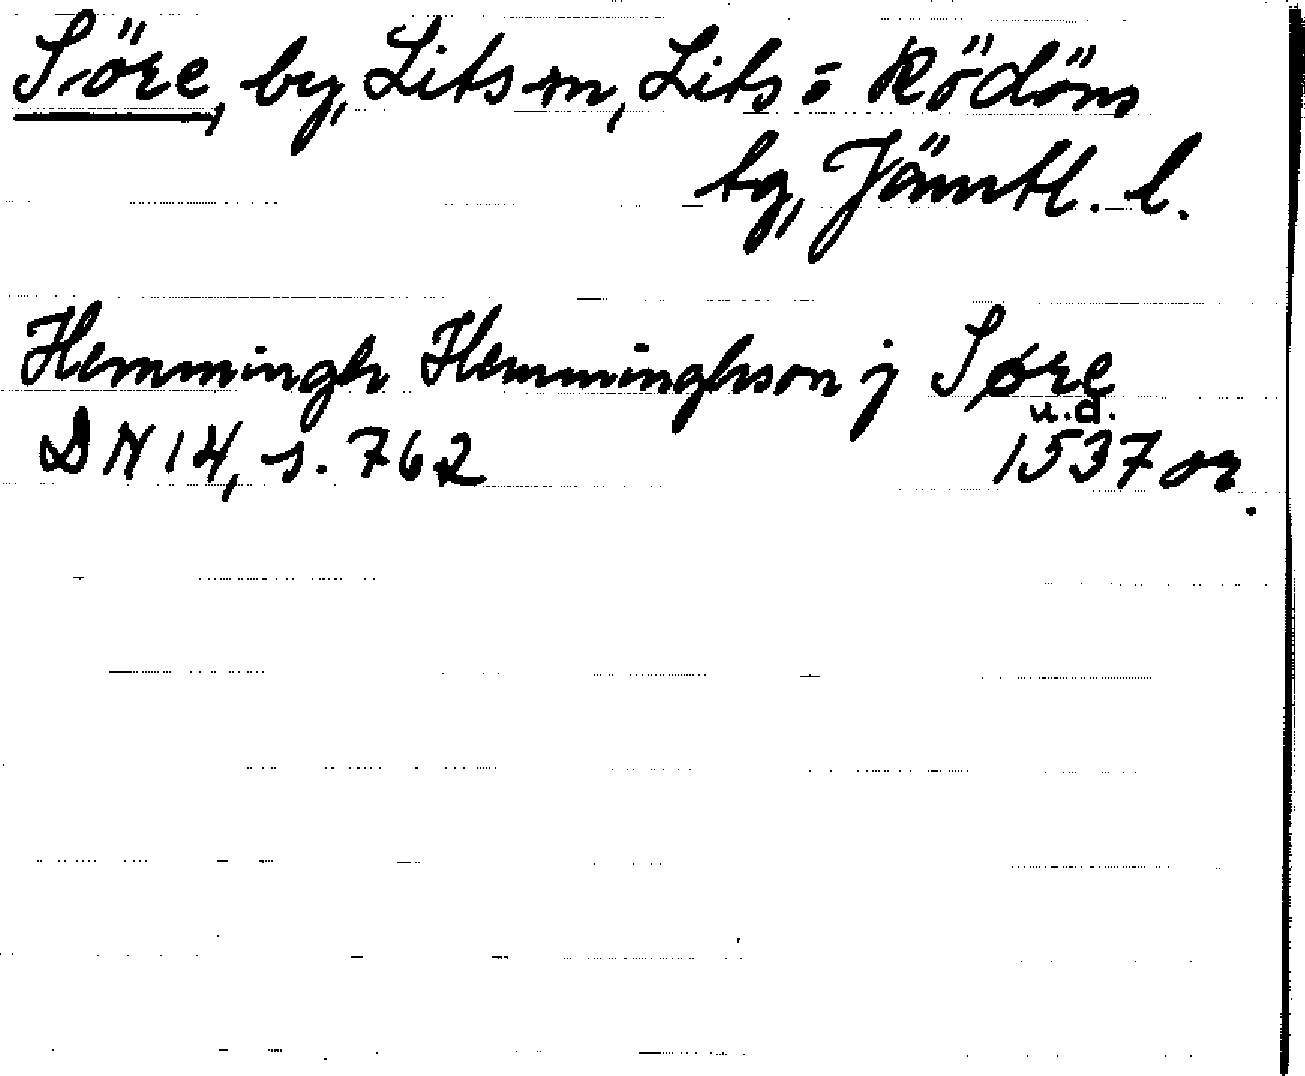 Söre, by, Lits sn, Lits o Rödöns
tg, Jämtl. l.
Hemmingh Hemminghson j Søre
u.d.
DN 14, s. 762 1537 or.